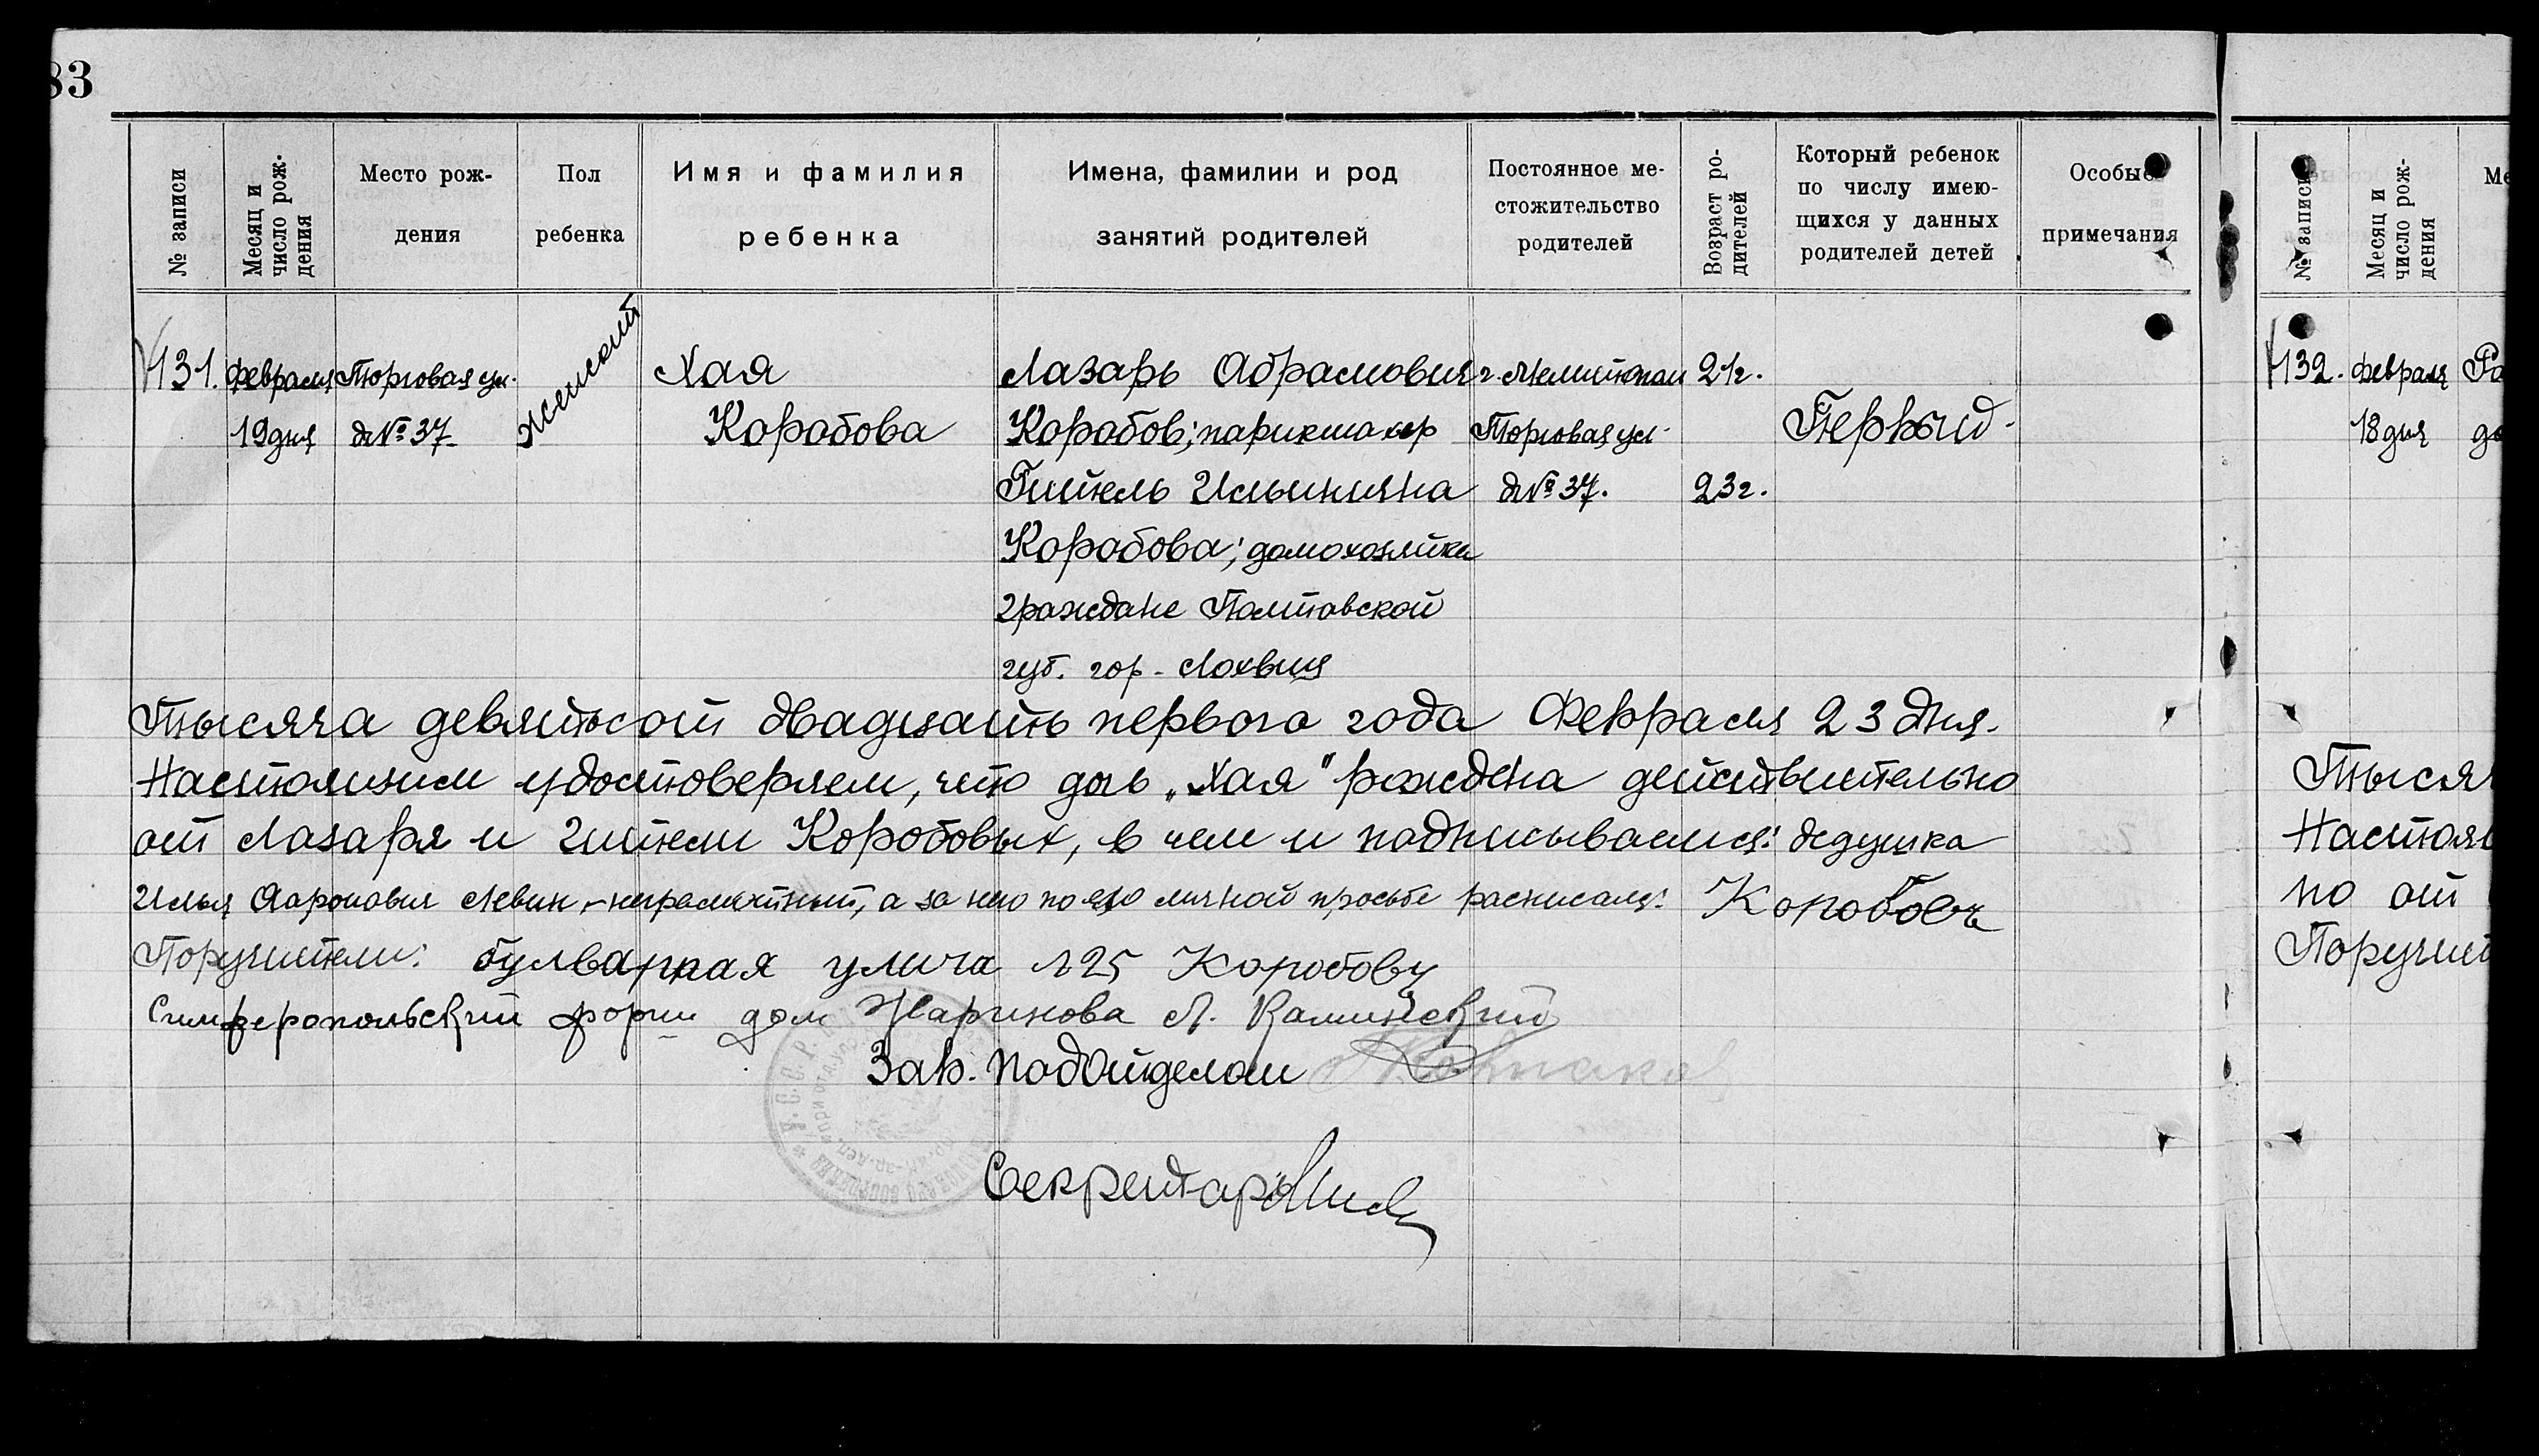 83
№ записи
Месяц и число рождения
Место рож-
дения
Пол
ребенка
Имя и фамилия
ребенка
Имена, фамилии и род
занятий родителей
Постоянное ме-
стожительство
родителей
Возраст ро-
дителей
Который ребенок
по числу имею-
щихся у данных
родителей детей
Особые
примечания
131. Февраля Торговая ул. Женский Хая Лазарь Абрамович г. Мелитополь 21г.
19 дня д№ 37 Коробова Коробов; парикмахер Торговая ул. Первый.
Гительь Ильинична д№ 37. 23г.
Коробова; домохозяйка
граждане Полтавской
губ. гор. Лохвица
Тысяча девятьсот двадцать первого года Февраля 23 дня.
Настоящим удостоверяем, что дочь „Хая" рождена действительно
от Лазаря и Гители Коробовых, в чем и подписываемся: дедушка
Илья Ааронович Левин, неграмотный, а за него по его личной просьбе расписался: Коробов
Поручители: булварная улича №25 Коробову
Симферопольский форш дом Жаринова Л. Каминский
Зав. Подотделом
Секретарь
№ записи
Месяц и
число рож-
дения
132. Февраля
18 дня
Тысяч
Настоя
но от
Поручит